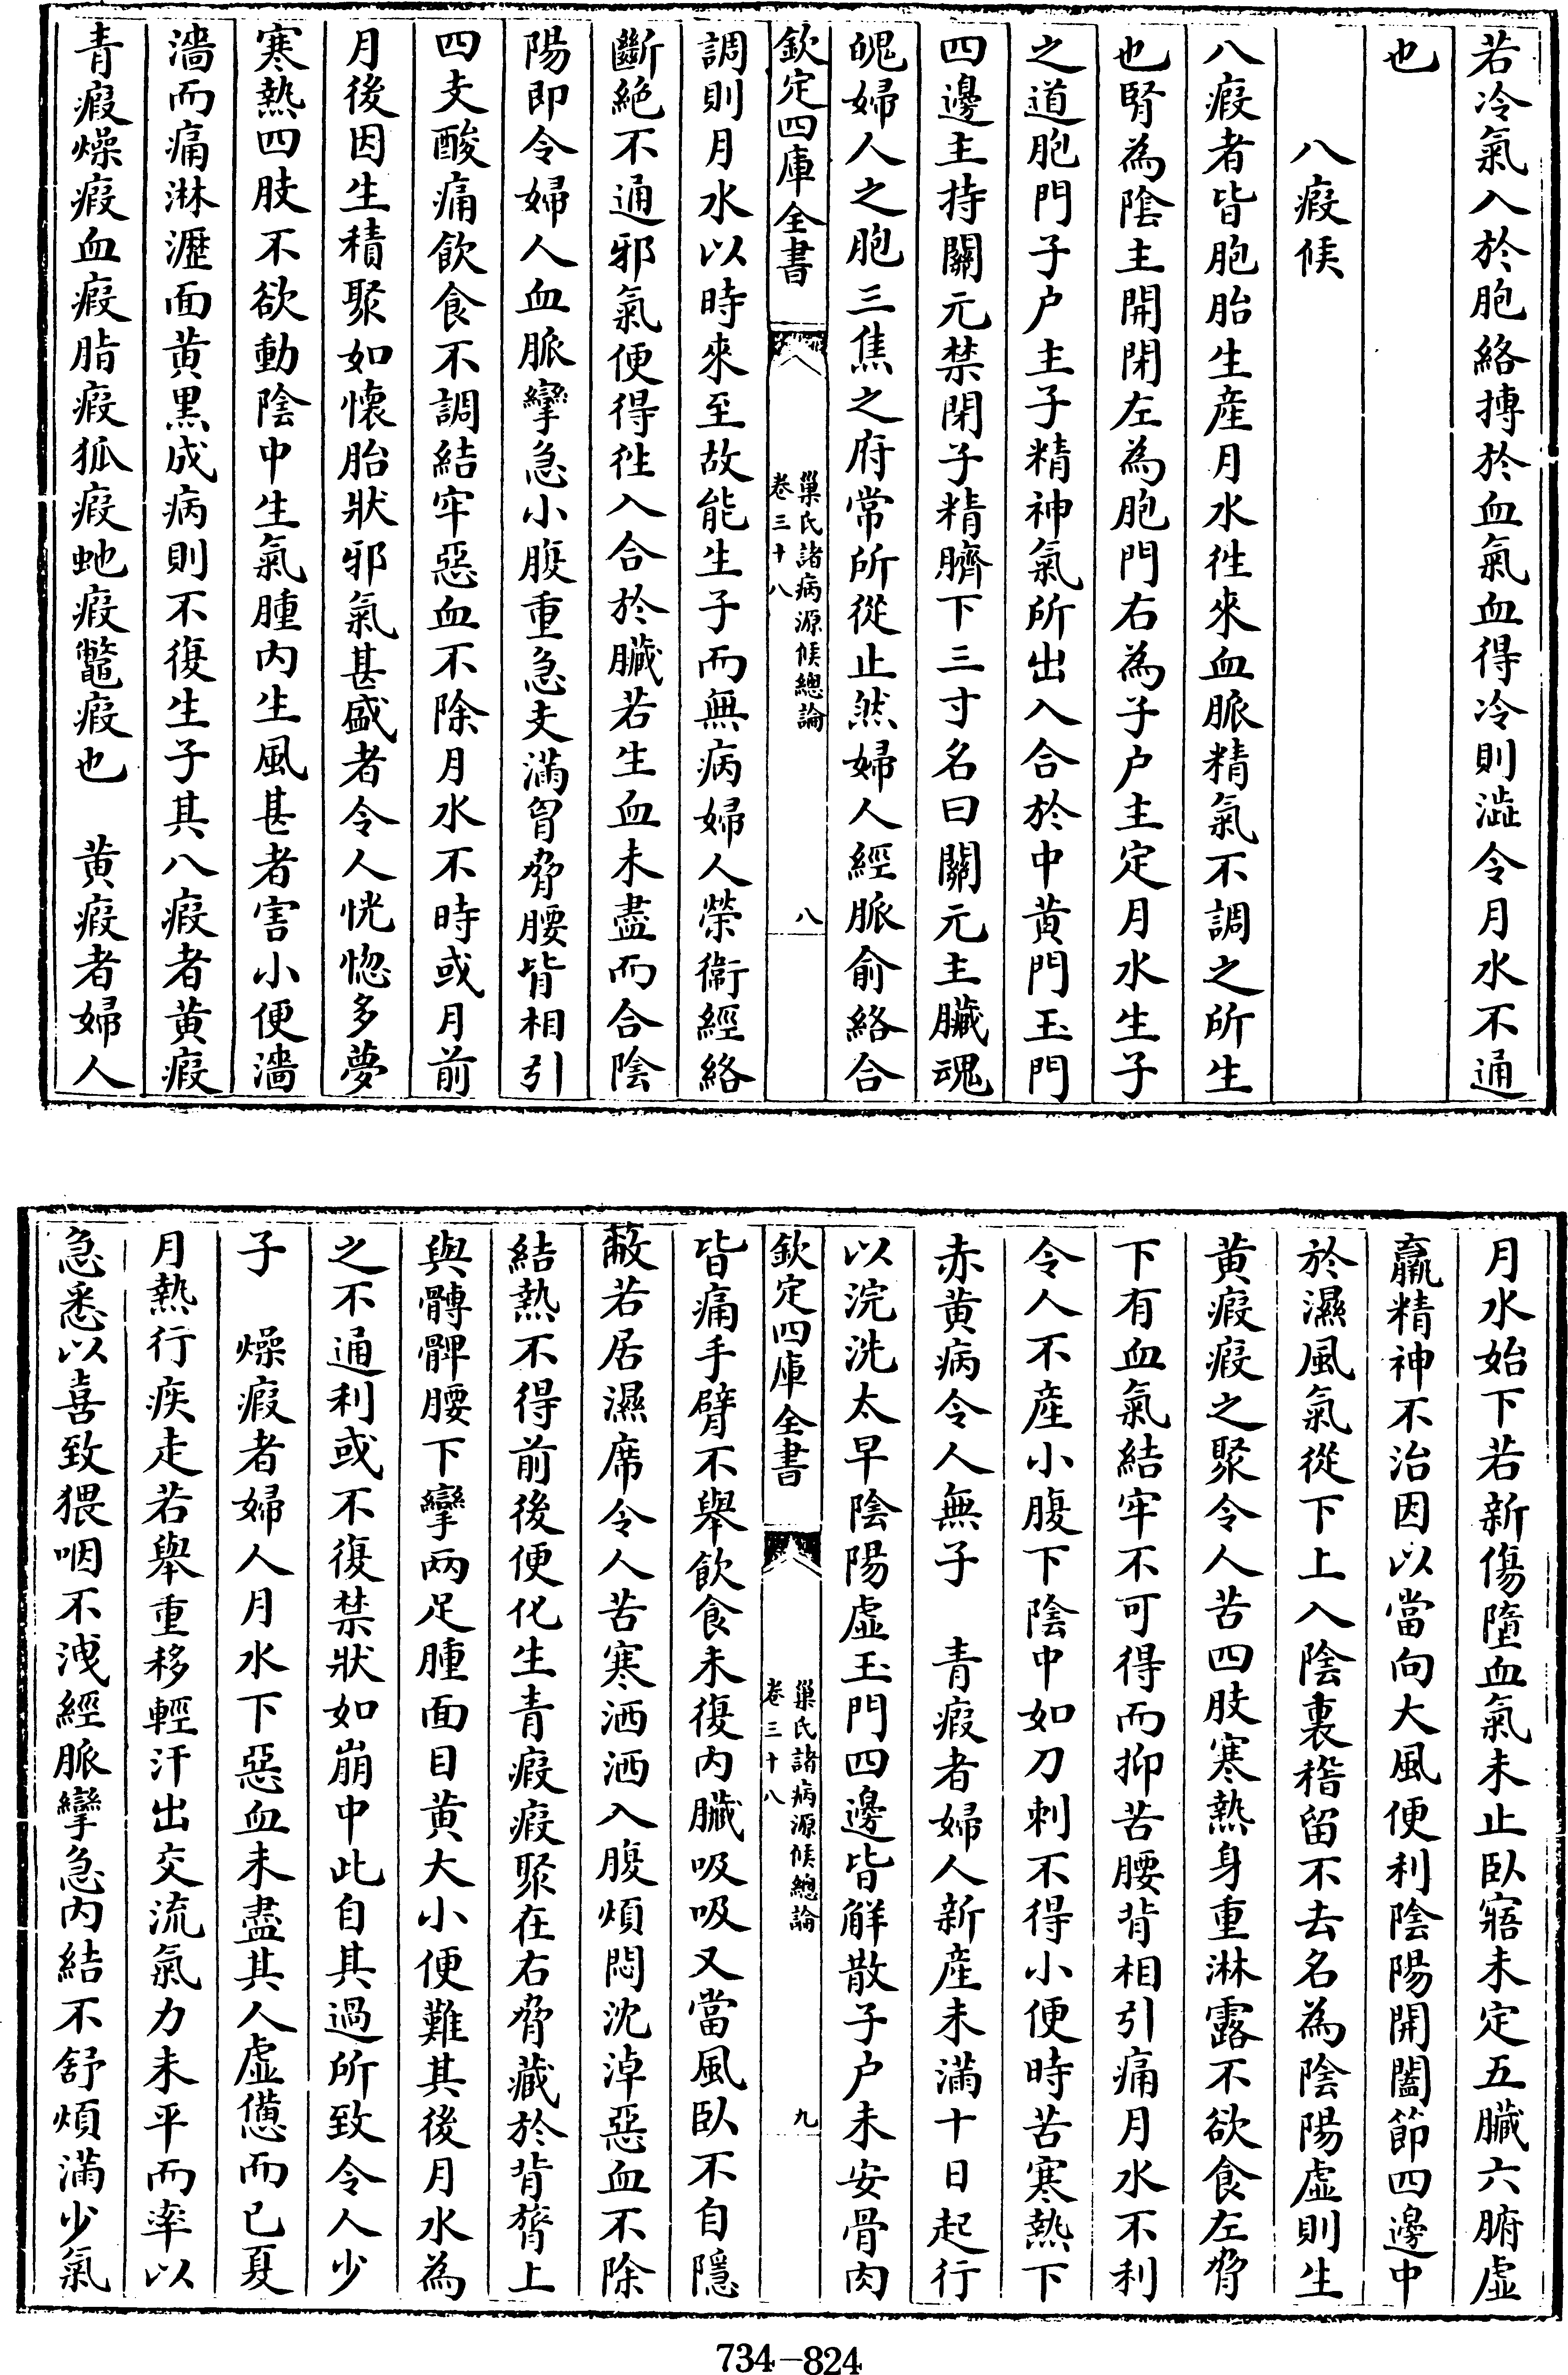 若冷氣入於胞絡搏於血氣血得冷則澁令月水不通
也
八瘕候
八瘕者皆胞胎生產月水徃來血脈精氣不調之所生
也腎為陰主開閉左為胞門右為子户主定月水生子
之道胞門子户主子精神氣所出入合於中黄門玉門
四邊主持關元禁閉子精臍下三寸名曰關元主臟魂
魄婦人之胞三焦之府常所從止然婦人經脈俞絡合
欽定四庫全書
巢氏諸病源候總論
卷三十八
八
調則月水以時來至故能生子而無病婦人榮衞經絡
斷絶不通邪氣便得徃入合於臟若生血未盡而合陰
陽即令婦人血脈攣急小腹重急支滿胷脅腰背相引
四支酸痛飲食不調結牢惡血不除月水不時或月前
月後因生積聚如懷胎狀邪氣甚盛者令人恍惚多夢
寒熱四肢不欲動陰中生氣腫内生風甚者害小便濇
濇而痛淋瀝面黄黑成病則不復生子其八瘕者黄瘕
青瘕燥瘕血瘕脂瘕狐瘕虵瘕鼈瘕也　黄瘕者婦人
月水始下若新傷墮血氣未止卧寤未定五臟六腑虛
羸精神不治因以當向大風便利陰陽開闔節四邊中
於濕風氣從下上入陰裏稽留不去名為陰陽虛則生
黄瘕瘕之聚令人苦四肢寒熱身重淋露不欲食左脅
下有血氣結牢不可得而抑苦腰背相引痛月水不利
令人不產小腹下陰中如刀刺不得小便時苦寒熱下
赤黄病令人無子　青瘕者婦人新產未滿十日起行
以浣洗太早陰陽虛玉門四邊皆解散子户未安骨肉
欽定四庫全書
巢氏諸病源候總論
卷三十八
九
皆痛手臂不舉飲食未復内臟吸吸又當風卧不自隱
蔽若居濕席令人苦寒洒洒入腹煩悶沈淖惡血不除
結熱不得前後便化生青瘕瘕聚在右脅藏於背膂上
與髆髀腰下攣兩足腫面目黄大小便難其後月水為
之不通利或不復禁狀如崩中此自其過所致令人少
子　燥瘕者婦人月水下惡血未盡其人虛憊而已夏
月熱行疾走若舉重移輕汗出交流氣力未平而率以
急恚以喜致猥咽不洩經脈攣急内結不舒煩滿少氣
734-824